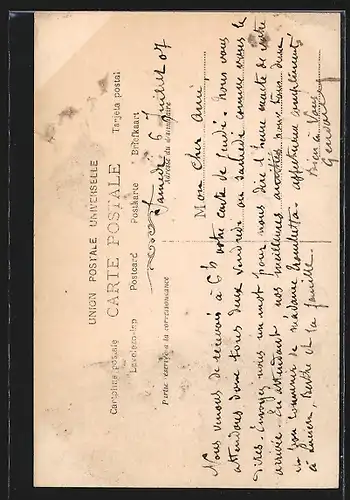 UNION POSTALE UNIVERSELLE
CARTE POSTALE
Cartolina postale Levelezo-lap Postcard Postkarte Briefkaart Tarjeta postal
Partie réservée à la correspondance
Adresse du destinataire
Samedi 6 Juillet 07
Mon cher Ami
Nous venons de recevoir à 6h votre carte de Jeudi. Nous vous
attendons donc tous deux Vendredi ou Samedi comme vous le
dites. Envoyez nous un mot pour nous dire l'heure exacte de votre
arrivée. En attendant nos meilleures amitiés pour tous deux
un bon souvenir de madame affectueux compliments
à Lucien, Berthe et la famille.
Bien à vous